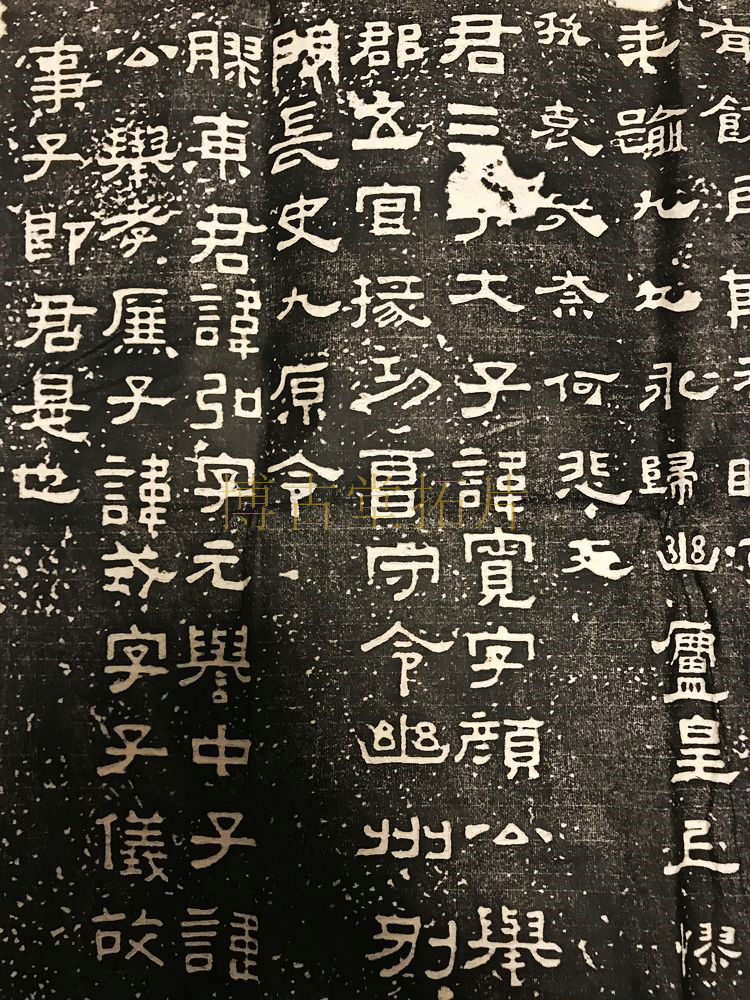 踰九九永歸幽廬皇上
哀兮奈何悲夫
君三子大子諱寬字顏公舉
郡五官掾功曹守令幽州別
門長史九原令
膠東君諱弘字元譽中子諱
公舉孝廉子諱字子儀故
事子郎君是也
博古堂拓片